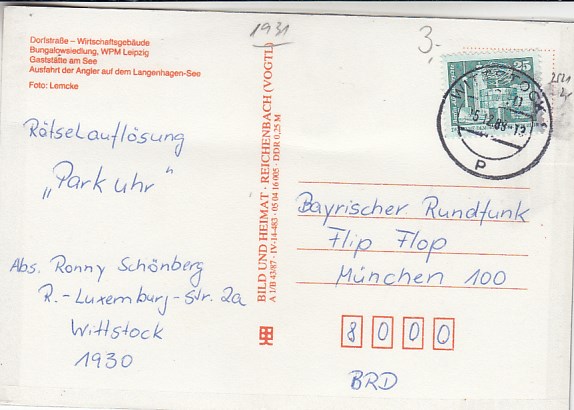 1931
3,-
Dorfstraße – Wirtschaftsgebäude
Bungalowsiedlung, WPM Leipzig
Gaststätte am See
Ausfahrt der Angler auf dem Langenhagen-See
Foto: Lemcke
25
WITTSTOCK
15.12.88-13
P
Rätselauflösung
„Parkuhr"
Abs. Ronny Schönberg
R.-Luxemburg-Str. 2a
Wittstock
1930
BILD UND HEIMAT · REICHENBACH (VOGTL)
A 1/B 43/87 · IV-14-483 · 05 04 16 005 · DDR 0,25 M
Bayrischer Rundfunk
Flip Flop
München 100
8000
BRD